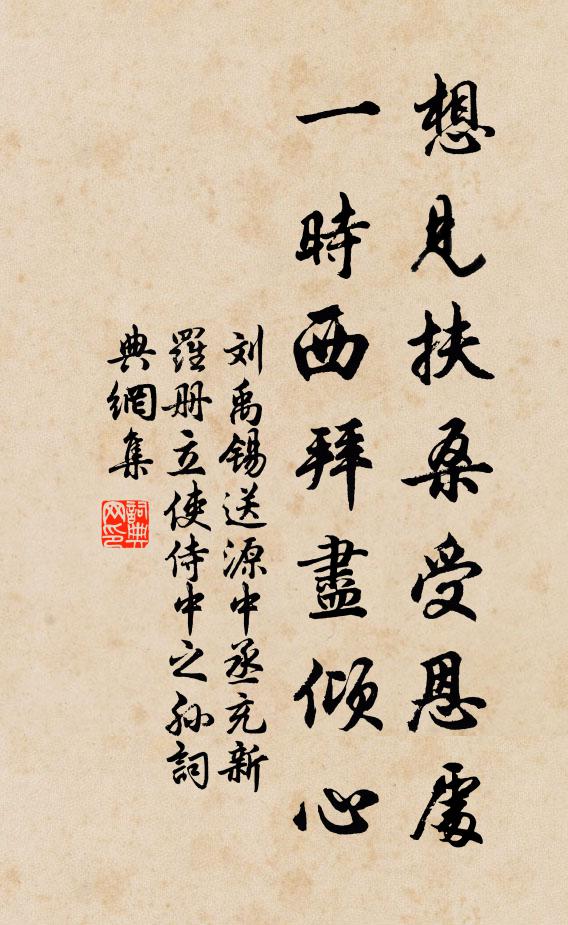 想見扶桑受恩處
一時西拜盡傾心
刘禹锡送源中丞充新
羅册立使侍中之孙詞
典網集
詞典
网印